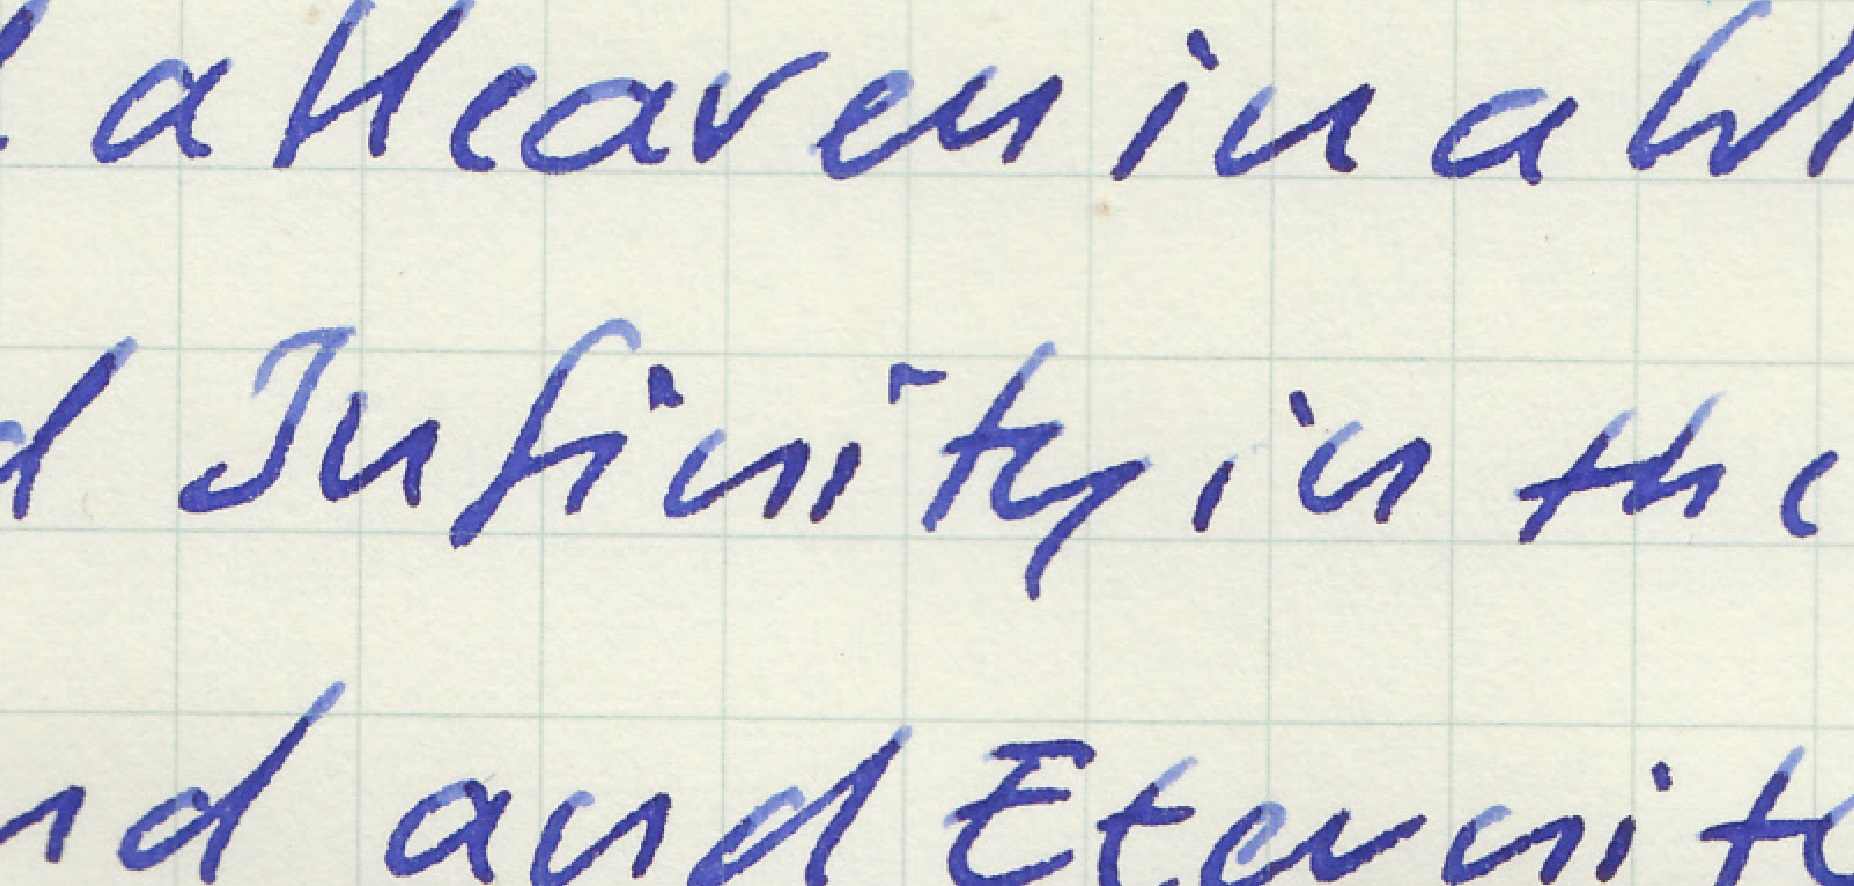 a Heaven in a Wi
d Infinity in the
nd and Eternit